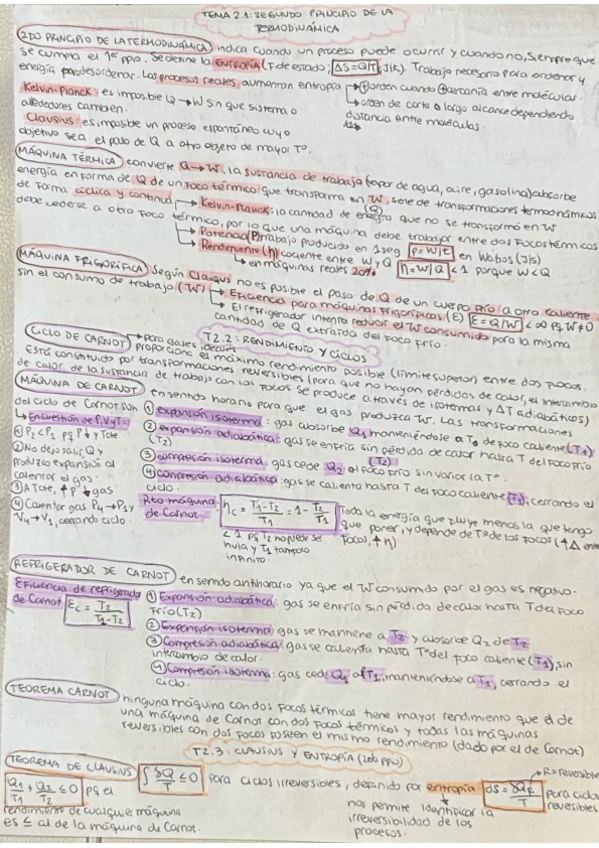 TEMA 2.1: SEGUNDO PRINCIPIO DE LA
TERMODINÁMICA
2DO PRINCIPIO DE LA TERMODINÁMICA indica cuando un proceso puede ocurrir y cuando no, siempre que
se cumpla el 1er ppio. Se define la ENTROPÍA (F de estado; ΔS=Q/T, J/K). Trabajo necesario para ordenar y
energía para desordenar. Los procesos reales, aumentan entropía → ⊕ orden cuando ⊕ cercanía entre moléculas.
Kelvin-Planck: es imposible Q → W sin que sistema o
alrededores cambien.
→ orden de corto o largo alcance dependiendo
distancia entre moléculas.
Clausius: es imposible un proceso espontáneo cuyo
objetivo sea el paso de Q a otro objeto de mayor Tº.
MÁQUINA TÉRMICA convierte Q → W. La sustancia de trabajo (vapor de agua, aire, gasolina) absorbe
energía en forma de Q de un foco térmico que transforma en W, serie de transformaciones termodinámicas
de forma cíclica y continua → Kelvin-Planck: la cantidad de energía (Q) que no se transformó en W
debe cederse a otro foco térmico, por lo que una máquina debe trabajar entre dos focos térmicos
→ Potencia (P) trabajo producido en 1 seg P=W/t en Watios (J/s)
→ Rendimiento (η) cociente entre W y Q η=W/Q < 1 porque W<Q
→ en máquinas reales 20%
MÁQUINA FRIGORÍFICA Según Claųsius no es posible el paso de Q de un cuerpo frío a otro caliente
sin el consumo de trabajo (W) → Eficiencia para máquinas frigoríficas (E) E=Q/W < ∞ pq W≠0
→ El refrigerador intenta reducir el W consumido para la misma
cantidad de Q extraída del foco frío.
T2.2: RENDIMIENTO Y CICLOS
CICLO DE CARNOT → para gases ideales
proporciona el máximo rendimiento posible (límite superior) entre dos focos.
Está constituido por transformaciones reversibles (para que no hayan pérdidas de calor, el intercambio
de calor de la sustancia de trabajo con los focos se produce a través de isotermas y ΔT adiabáticos)
MÁQUINA DE CARNOT en sentido horario para que el gas produzca W. Las transformaciones
del ciclo de Carnot son ① expansión isoterma: gas absorbe Q1 manteniéndose a Tª de foco caliente (T1)
→ En cuestión de P, V y T:
① P2<P1 pq P↓ y T cte
② expansión adiabática: gas se enfría sin pérdida de calor hasta T del foco frío
(T2)
② No dejo salir Q y
produzco expansión al
calentar el gas.
③ compresión isoterma, gas cede Q2 al foco frío sin variar la Tª. (T2)
④ compresión adiabática: gas se calienta hasta T del foco caliente (T1), cerrando el
ciclo.
③ A T cte, ↑P ↓ gas
④ Calentar gas P4→P1 y
V4→V1, cerrando ciclo.
Rto máquina
de Carnot
ηc = T1-T2/T1 = 1 - T2/T1
Toda la energía que fluye menos la que tengo
que poner, y depende de Tª de los focos (↑Δ entre
focos, ↑η)
< 1 pq T2 no puede ser
nula y T1 tampoco
infinito.
REFRIGERADOR DE CARNOT en sentido antihorario ya que el W consumido por el gas es negativo.
Eficiencia de refrigerador
de Carnot Ec = T2/T1-T2
① Expansión adiabática: gas se enfría sin pérdida de calor hasta T del foco
frío (T2)
② Expansión isoterma: gas se mantiene a T2 y absorbe Q2 de T2
③ Compresión adiabática: gas se calienta hasta Tª del foco caliente (T1), sin
intercambio de calor.
④ Compresión isoterma: gas cede Q1 a T1, manteniéndose a T1, cerrando el
ciclo.
TEOREMA CARNOT ninguna máquina con dos focos térmicos tiene mayor rendimiento que el de
una máquina de Carnot con dos focos térmicos y todas las máquinas
reversibles con dos focos poseen el mismo rendimiento (dado por el de Carnot)
T2.3: CLAUSIUS Y ENTROPÍA (2do ppio)
TEOREMA DE CLAUSIUS ∫ δQ/T ≤ 0 para ciclos irreversibles, definido por entropía dS = δQR/T para ciclos
reversibles
→ R = reversible
Q1/T1 + Q2/T2 ≤ 0 pq el
rendimiento de cualquier máquina
es ≤ al de la máquina de Carnot.
nos permite identificar la
irreversibilidad de los
procesos.